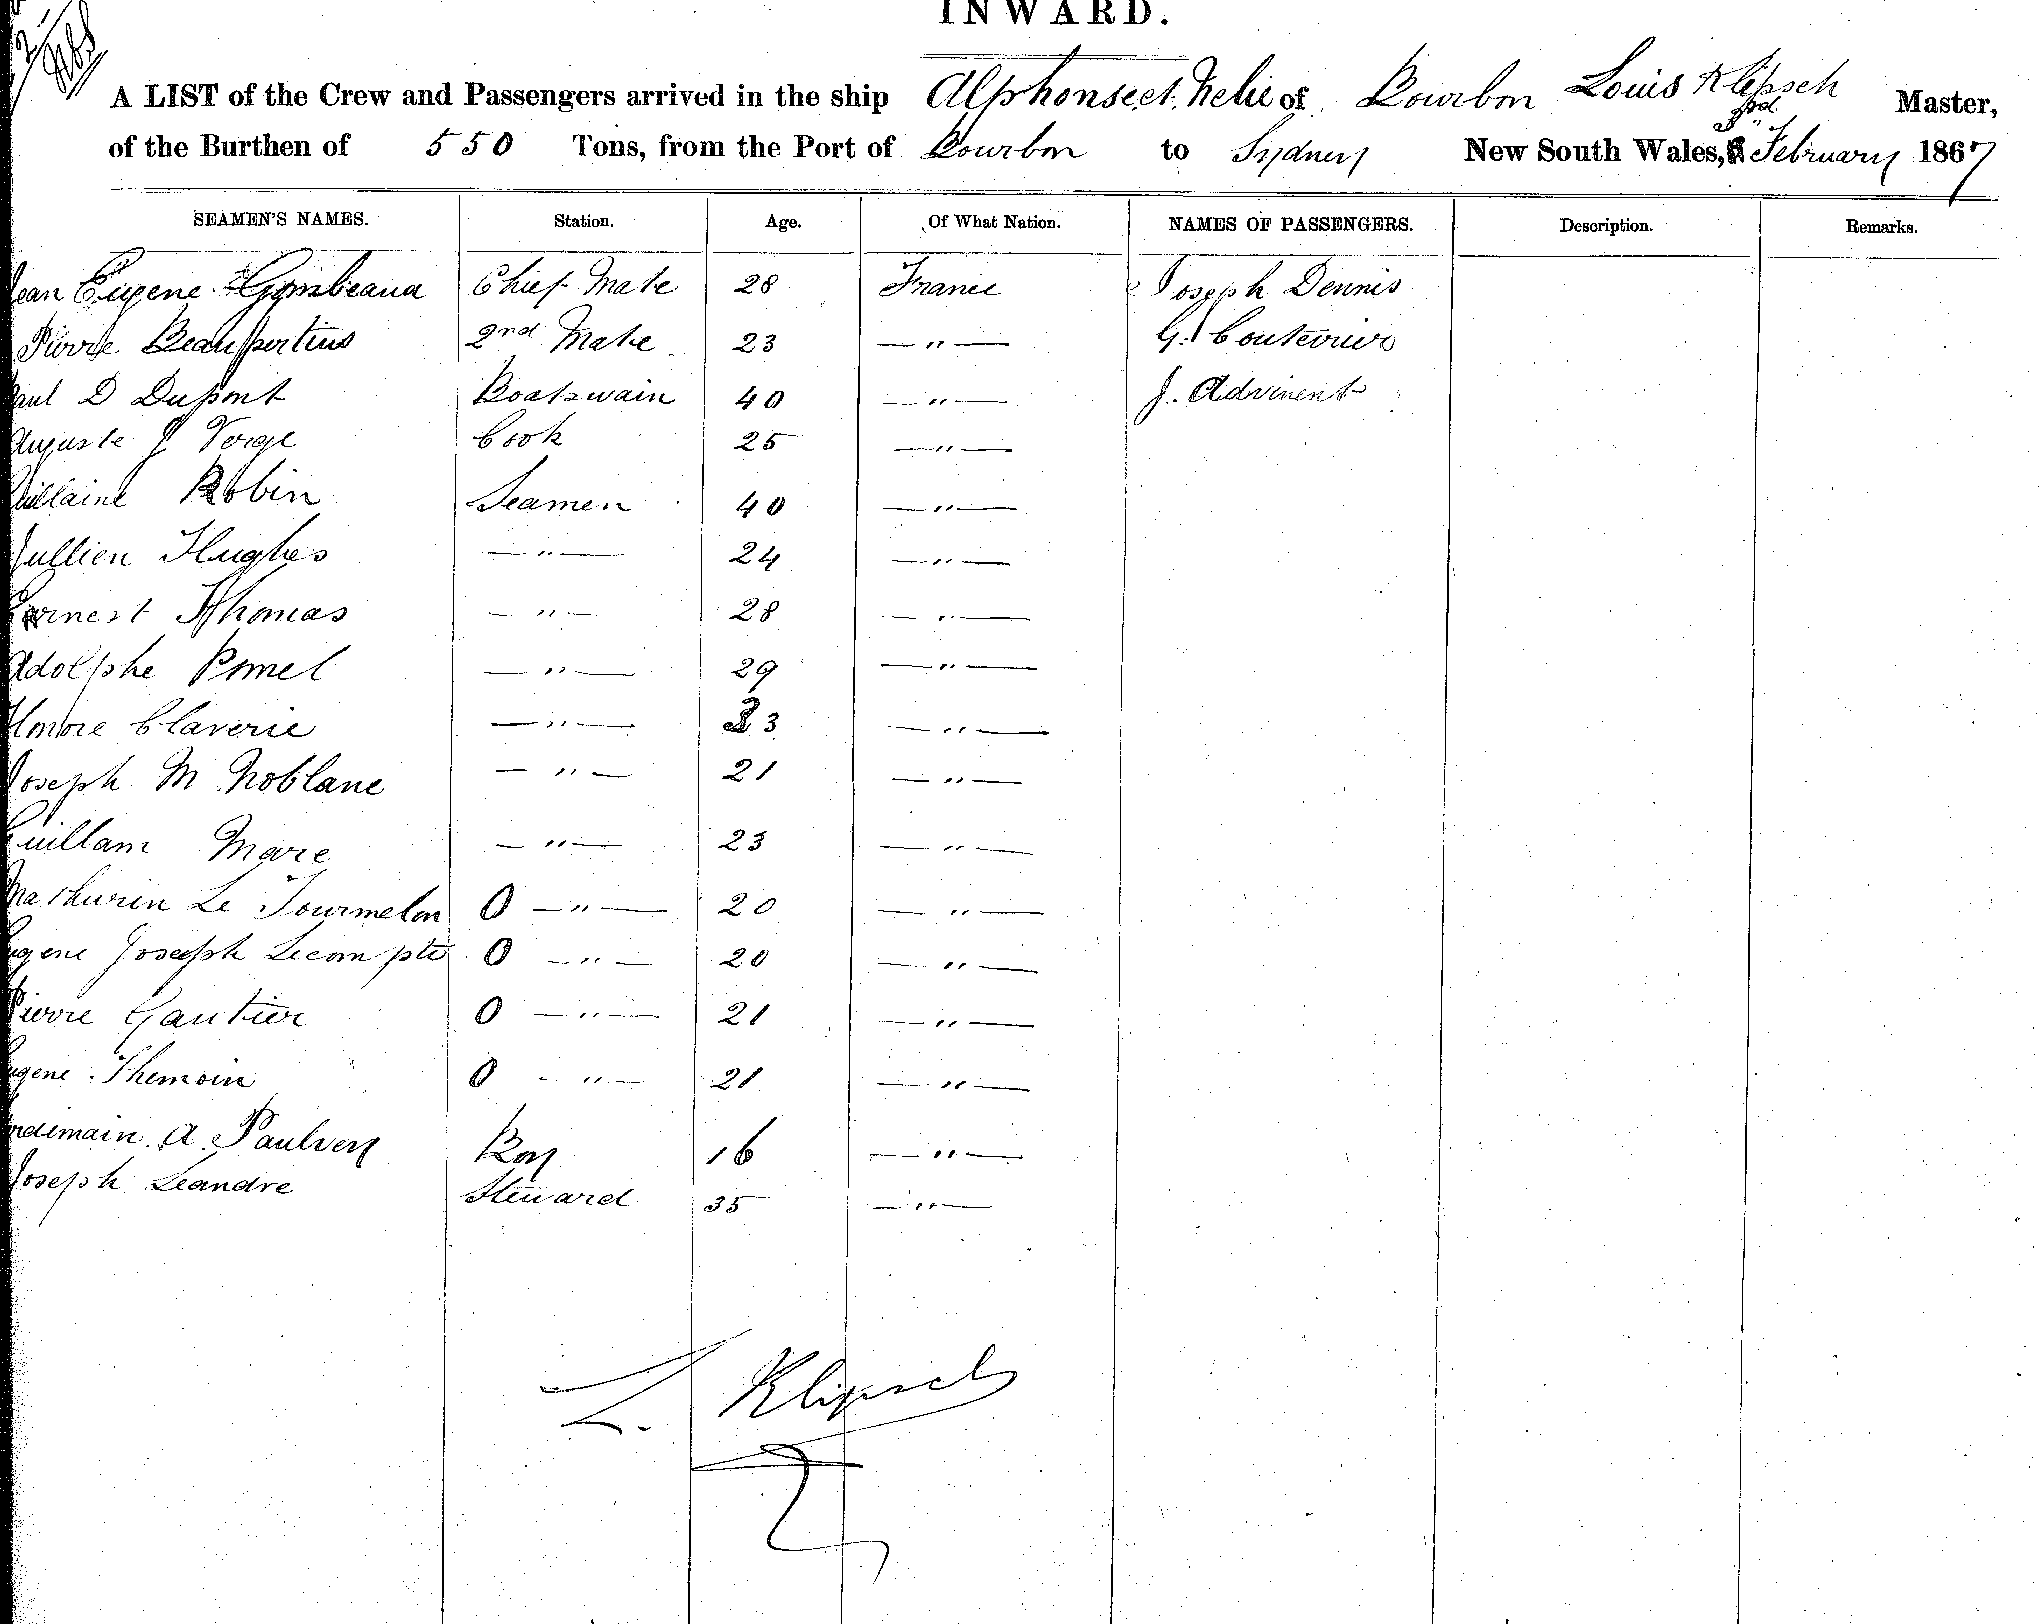 INWARD.
A LIST of the Crew and Passengers arrived in the ship Alphonse et Nelie of Bourbon Louis Klipsch Master,
of the Burthen of 550 Tons, from the Port of Bourbon to Sydney New South Wales, 3rd February 1867
SEAMEN'S NAMES. Station. Age. Of What Nation. NAMES OF PASSENGERS. Description. Remarks.
Jean Eugene Gombeaud Chief Mate 28 France Joseph Dennis
Pierre Beaupertius 2nd Mate 23 — " — G. Couterier
Paul D Dupont Boatswain 40 — " — J. Advinent
Auguste J Verge Cook 25 — " —
Robin Seamen 40 — " —
Jullien Hughes — " — 24 — " —
Ernest Thomas — " — 28 — " —
Adolphe Pomel — " — 29 — " —
Honore Claverie — " — 23 — " —
Joseph M Noblanc — " — 21 — " —
Guillam Mare — " — 23 — " —
Mathurin Le Tourmelon O — " — 20 — " —
Eugene Joseph Lecompte O — " — 20 — " —
Pierre Gautier O — " — 21 — " —
Eugene Themoin O — " — 21 — " —
A Paulvery Boy 16 — " —
Joseph Leandre Steward 35 — " —
L. Klipsch